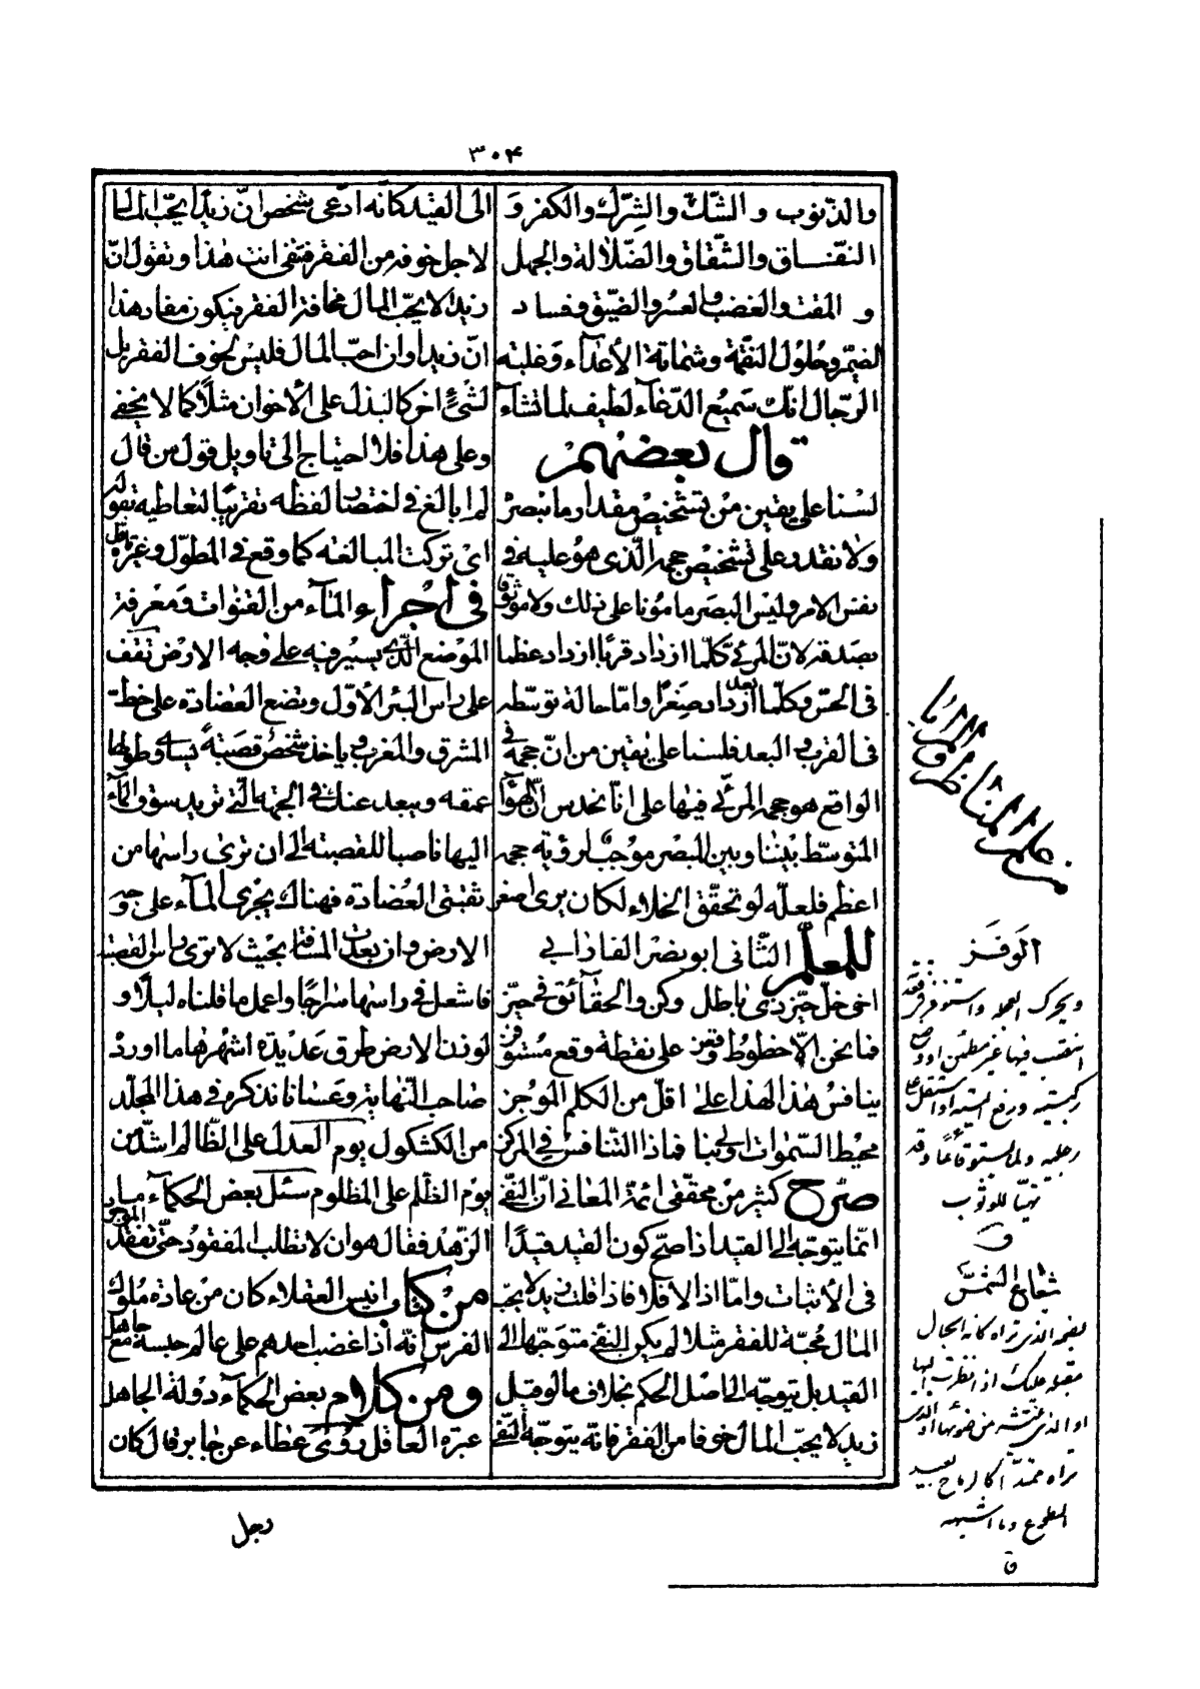 ٣٠۴
والذنوب والشّك والشِّرك والكفر وَ
النفّاق والشّقاق والضّلالة والجهل
و المقت والغضب والعسر والضّيق وفساد
الضمير وحلول النقمة وشماتة الأعدآء وغلبة
الرّجال انّك سَميع الدّعآء لطيف لما تشآء
قال بعضهم
لسنا على يقين من تشخيص مقدار ما نبصرُ
ولا نقدر على تشخيص حجمه الّذى هو عليه فى
نفس الامر وليس البصر مأمونا على ذلك ولا موثوقا
بصدقه لانّ المرئى كلّما ازداد قربًا ازداد عظما
فى الحسّ وكلّما ازداد بعدا صغرًا وامّا حالة توسّطه
فى القرب و البعد فلسنا على يقين من انّ حجمه فى
الواقع هو حجمه المرئى فيها على انّا نحدس انّ الهوآء
المتوسّط بيننا وبين المبصر موجب لرؤية حجمه
اعظم فلعلّه لو تحقّق الخلاء لكان يرى اصغر
للمعلّم الثّانى ابو نصر الفارابى
اخى خلّ حيّز ذى باطل وكن والحقآئق فى حيّز
فما نحن الّا خطوط وقعن على نقطة وقع مستوفز
ينافس هذا لهذا على اقلّ من الكلم الموجز
محيط السّموات اولى بنا فماذا التّنافس فى المركز
صرّح كثير من محقّقى ائمّة المعانى انّ النّفى
انّما يتوجّه الى القيد اذا صحّ كون القيد قيدًا
فى الأثبات وامّا اذ الا فلا فاذا قلت زيد لا يحبّ
المال محبّة للفقر مثلا لم يكن النّفى متوجّها الى
القيد بل يتوجّه الى اصل الحكم بخلاف ما لو قيل
زيد لا يحبّ المال خوفا من الفقر فانّه يتوجّه النّفى
الى القيد كانّه ادّعى شخص انّ زيدًا يحبّ المال
لاجل خوفه من الفقر فتنفى انت هذا وتقول انّ
زيدا لا يحبّ المال مخافة الفقر فيكون مفاد هذا
انّ زيدا وان احبّ المال فليس لخوف الفقر بل
لشىء اخر كالبذل على الأخوان مثلًا كما لا يخفى
وعلى هذا فلا احتياج الى تاويل قول من قال
لم ابالغ فى اختصار لفظه تقريبًا لتعاطيه بقوله
اى تركت المبالغة كما وقع فى المطوّل وغيره تأمّل
فى اجراء المآء من القنوات ومعرفة
الموضع الّذى يسير فيه على وجه الارض تقف
على رأس البئر الأوّل وتضع العضادة على خطّ
المشرق والمغرب وياخذ شخص قصبة يساوى طولها
عمقه ويبعد عنك فى الجهة الّتى تريد سوق المآء
اليها ناصبا للقصبة الى ان ترى راسها من
ثقبتى العُضادة فهناك يجرى المآء على وجه
الارض وان بعدت المسافة بحيث لا ترى راس القصبة
فاشعل فى راسها سراجًا واعمل ما قلناه ليلًا و
لوزن الارض طرق عديدة اشهرها ما اوردُ
صاحب النّهاية وعسانا نذكره فى هذا المجلّد
من الكشكول يوم العدل على الظّالم اشدّ من
يوم الظّلم على المظلوم سئل بعض الحكمآء ما بال
الزّهد فقال هو ان لا تطلب المفقود حتّى تفقد الموجود
من كتاب انيس العقلاء كان من عادة ملوك
الفرس انّه اذا غضب احدهم على عالم حبسه مع جاهل
ومن كلام بعض الحكمآء دولة الجاهل
عبرة العاقل روى عطاء عن جابر قال كان
رجل
علم المناظر والمرايا
الوَفز
ويحرّك العجلة واستوفز فى قعدته
انتصب فيها غير مطمئن او وضع
ركبتيه ورفع اليتيه او استقلّ على
رجليه ولما يستو قائمًا وقد
تهيّا للوثوب
ق
شعاع الشمسّ
بضمه الذى تراه كانه الحبال
مقبلة عليك اذا نظرت اليها
او الذى ينتشر من ضوئها او الذى
تراه ممتدًّا كالرماح بعيد
الطلوع وما اشبهه
ق